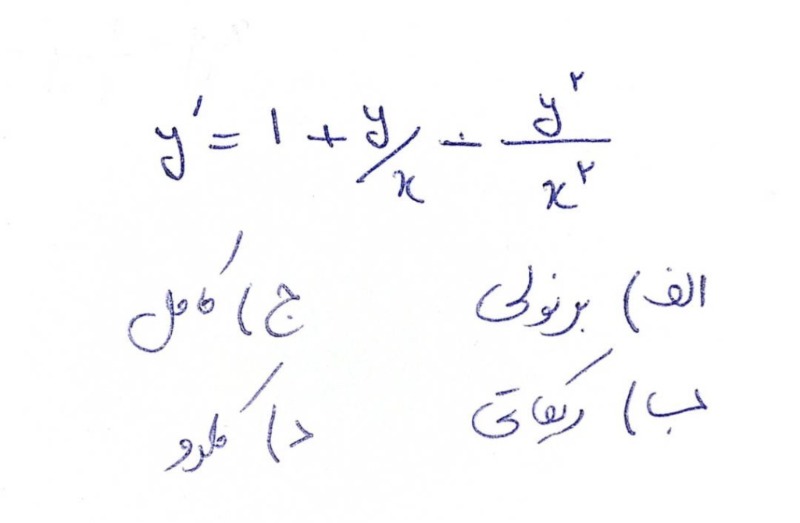 y' = 1 + y/x - y²/x²
الف) برنولی ج) کامل
ب) ریکاتی د) کلرو